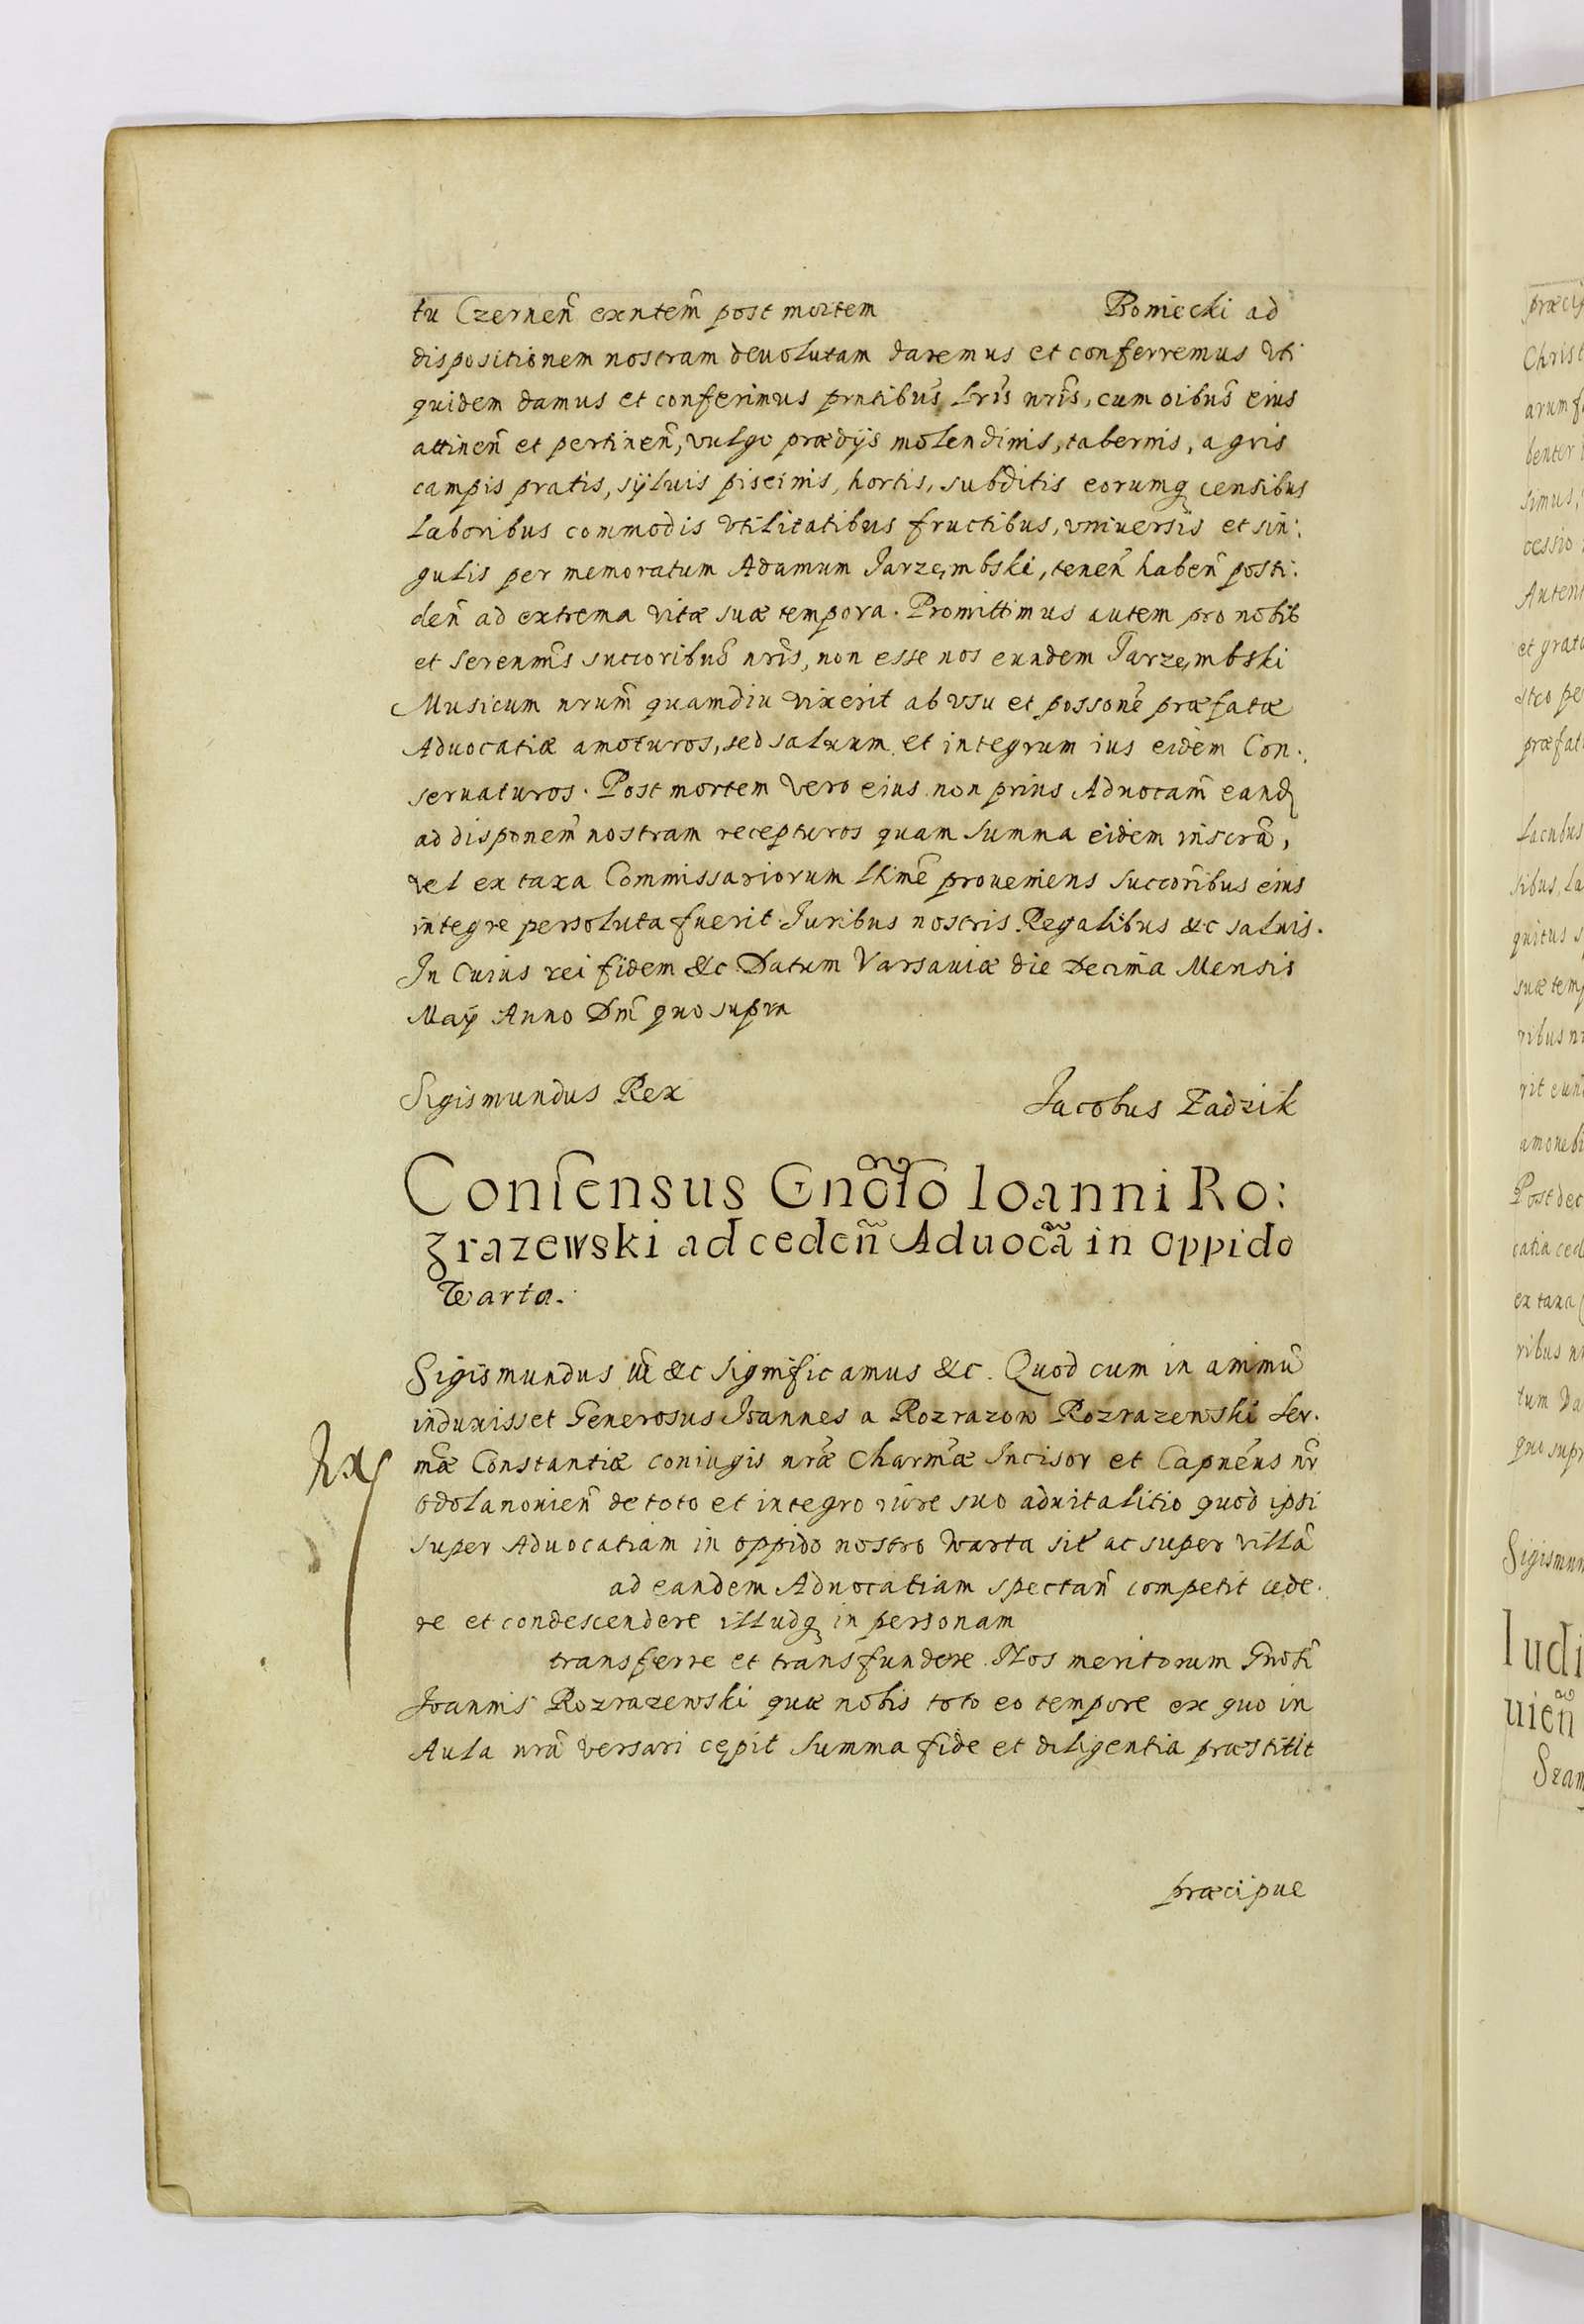 tu Czerneñ exntem̃ post mortem Roniecki ad
dispositionem nostram deuolutam daremus et conferremus vti
quidem damus et conferimus prntibus̃ lris̃ nris̃, cum oibus̃ eius
attineñ et pertineñ, vulgo prædijs molendinis, tabernis, agris
campis pratis, syluis piscinis, hortis, subditis eorumq censibus
laboribus commodis vtilitatibus fructibus, vniuersis et sin:
gulis per memoratum Adamum Jarzembski, teneñ habeñ possi:
deñ ad extrema vitæ suæ tempora. Promittimus autem pro nobis
et Serenmis̃ succoribus̃ nris̃, non esse nos eundem Jarzembski
Musicum nrum̃ quamdiu vixerit ab vsu et possone͂ præfatæ
Aduocatiæ amoturos, sed saluum et integrum ius eidem Con:
seruaturos. Post mortem vero eius non prius Aduocam̃ eand
ad disponem̃ nostram recepturos quam summa eidem inscrã,
vel ex taxa Commissariorum lhime͂ proueniens succoribus̃ eius
integre persoluta fuerit Juribus nostris Regalibus &c saluis.
In Cuius rei fidem &c Datum Varsauiæ die Decima Mensis
Maij Anno Dni͂ quo supra
Sigismundus Rex Jacobus Zadzik
Consensus Gñoso Ioanni Ro:
zrazewski ad cedeñ Aduocã in oppido
Warta.
Sigismundus iii &c Significamus &c. Quod cum in animũ
induxisset Generosus Joannes a Rozrazow Rozrazewski Ser:
mæ̃ Constantiæ coniugis nræ̃ Charmæ̃ Incisor et Capneus̃ nr̃
Odolanouieñ de toto et integro iure suo aduitalitio quod ipsi
super Aduocatiam in oppido nostro Warta sit ac super villã
ad eandem Aduocatiam spectañ competit cede:
re et condescendere illudq in personam
transferre et transfundere. Nos meritorum Gnosi͂
Joannis Rozrazewski quæ nobis toto eo tempore ex quo in
Aula nrã versari cępit summa fide et diligentia præstitit
præcipue